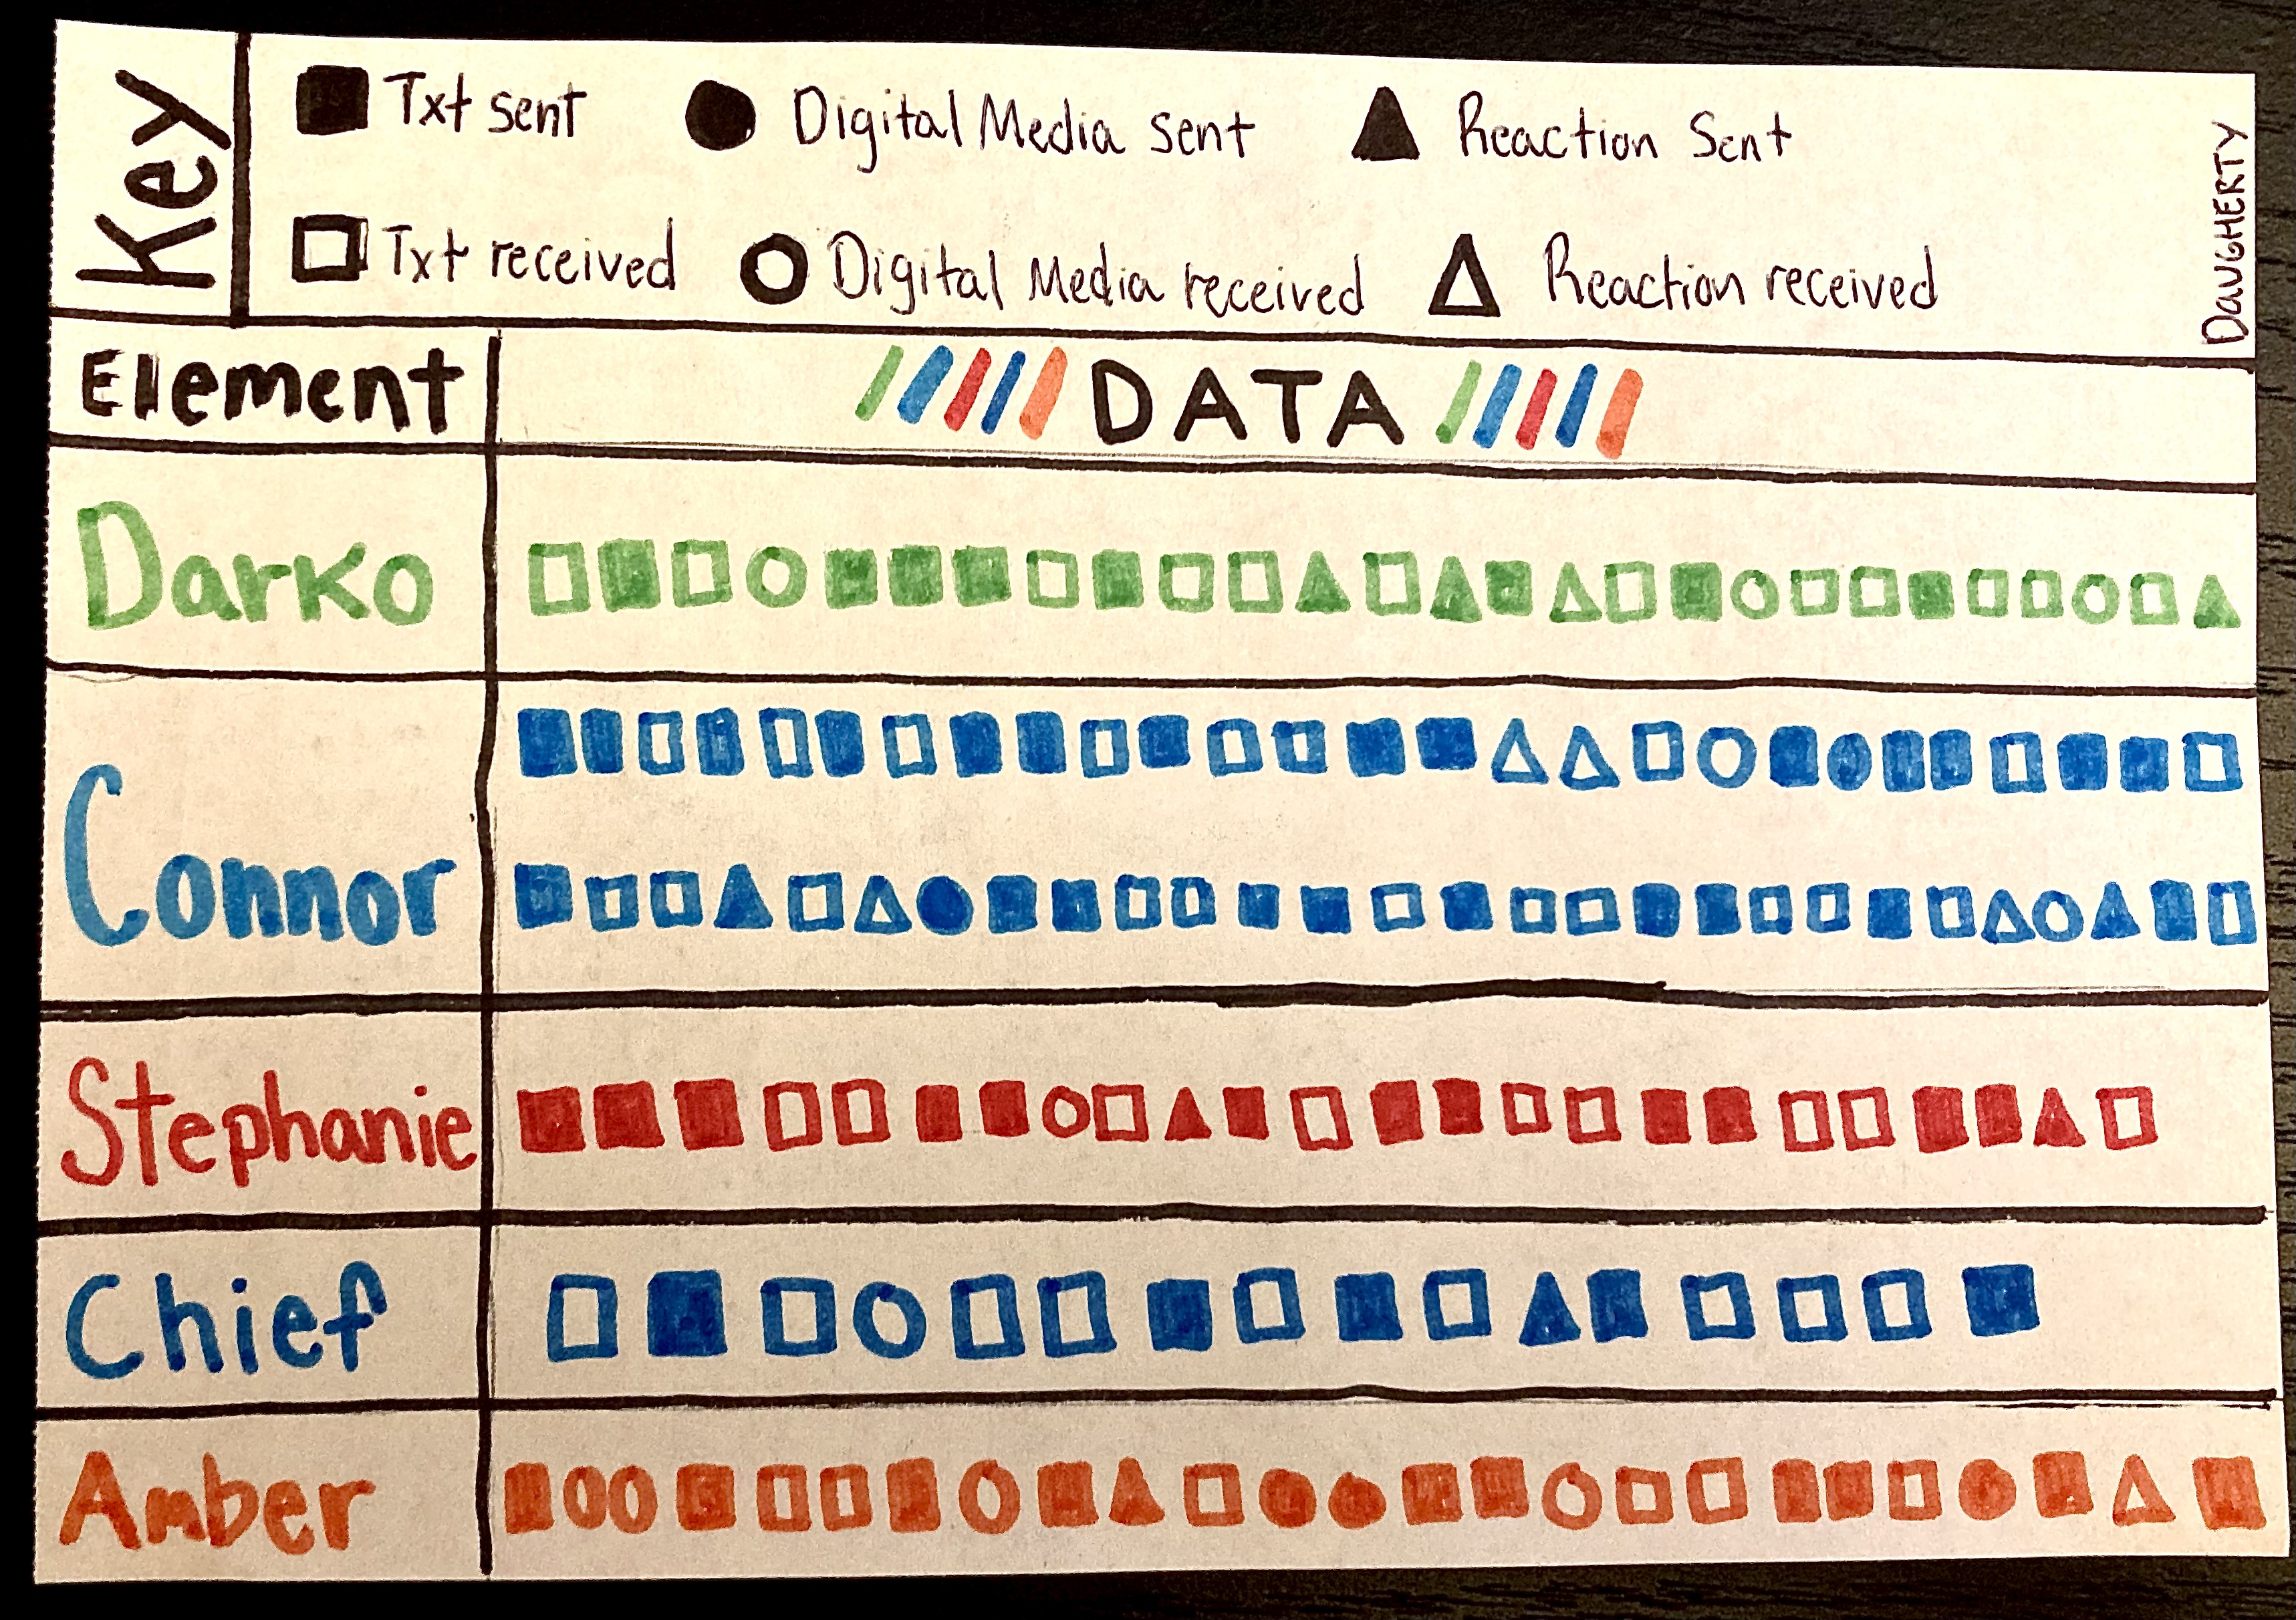 Key
Txt sent
Digital Media sent
Reaction Sent
Txt received
Digital Media received
Reaction received
DAUGHERTY
Element
DATA
Darko
Connor
Stephanie
Chief
Amber